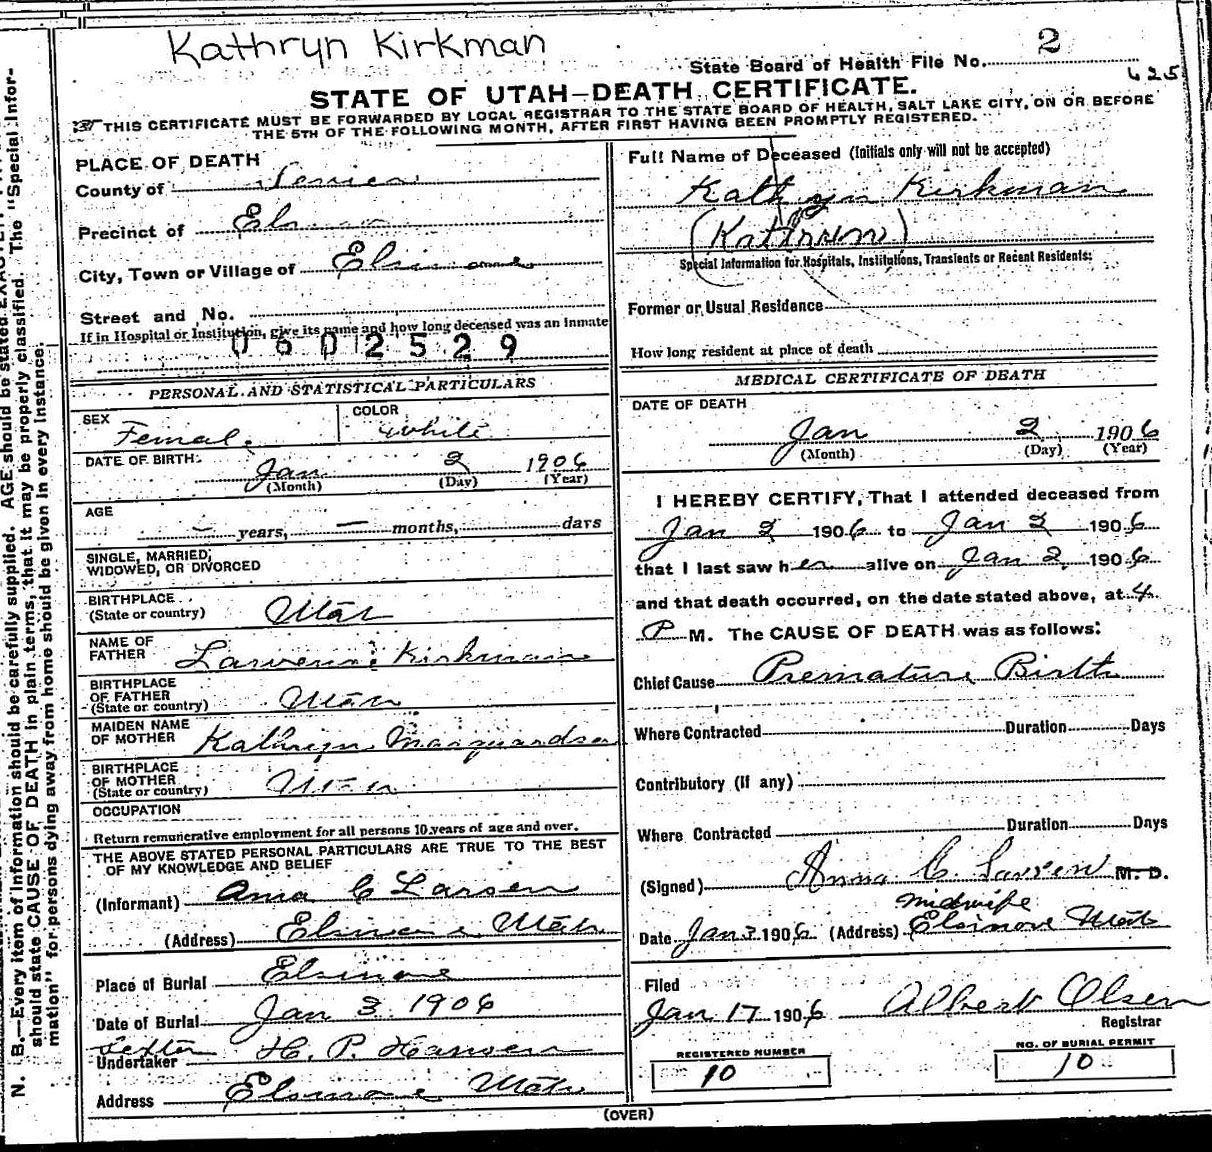 Kathryn Kirkman
State Board of Health File No. 2
625
STATE OF UTAH—DEATH CERTIFICATE.
THIS CERTIFICATE MUST BE FORWARDED BY LOCAL REGISTRAR TO THE STATE BOARD OF HEALTH, SALT LAKE CITY, ON OR BEFORE
THE 5TH OF THE FOLLOWING MONTH, AFTER FIRST HAVING BEEN PROMPTLY REGISTERED.
PLACE OF DEATH
County of Sevier
Precinct of Elsinore
City, Town or Village of Elsinore
Street and No.
If in Hospital or Institution, give its name and how long deceased was an inmate
0602529
PERSONAL AND STATISTICAL PARTICULARS
SEX Female
COLOR White
DATE OF BIRTH Jan 2 1906
(Month) (Day) (Year)
AGE — years, — months, days
SINGLE, MARRIED,
WIDOWED, OR DIVORCED
BIRTHPLACE
(State or country) Utah
NAME OF
FATHER Lawrence Kirkman
BIRTHPLACE
OF FATHER
(State or country) Utah
MAIDEN NAME
OF MOTHER Kathryn
BIRTHPLACE
OF MOTHER
(State or country) Utah
OCCUPATION
Return remunerative employment for all persons 10 years of age and over.
THE ABOVE STATED PERSONAL PARTICULARS ARE TRUE TO THE BEST
OF MY KNOWLEDGE AND BELIEF
(Informant) Anna C Larsen
(Address) Elsinore Utah
Place of Burial Elsinore
Date of Burial Jan 3 1906
Sexton
Undertaker H. P. Hansen
Address Elsinore Utah
Full Name of Deceased (Initials only will not be accepted)
Kathryn Kirkman
(Kathreen)
Special Information for Hospitals, Institutions, Transients or Recent Residents:
Former or Usual Residence
How long resident at place of death
MEDICAL CERTIFICATE OF DEATH
DATE OF DEATH
Jan 2 1906
(Month) (Day) (Year)
I HEREBY CERTIFY, That I attended deceased from
Jan 2 1906 to Jan 2 1906
that I last saw her alive on Jan 2, 1906
and that death occurred, on the date stated above, at 4
P M. The CAUSE OF DEATH was as follows:
Chief Cause Premature Birth
Where Contracted Duration Days
Contributory (if any)
Where Contracted Duration Days
(Signed) Anna C. Larsen M. D.
midwife
Date Jan 3 1906 (Address) Elsinore Utah
Filed
Jan 17 1906 Albert Olsen
Registrar
REGISTERED NUMBER
10
NO. OF BURIAL PERMIT
10
(OVER)
N. B.—Every item of information should be carefully supplied. AGE should be stated EXACTLY.
should state CAUSE OF DEATH in plain terms, that it may be properly classified. The "Special Infor-
mation" for persons dying away from home should be given in every instance.